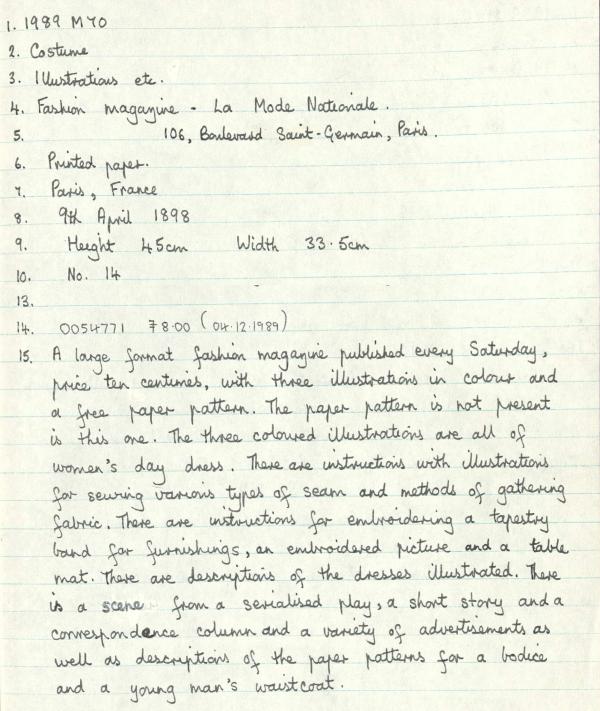 1. 1989 MYO
2. Costume
3. Illustrations etc.
4. Fashion magazine - La Mode Nationale.
5. 106, Boulevard Saint-Germain, Paris.
6. Printed paper.
7. Paris, France
8. 9th April 1898
9. Height 45cm Width 33.5cm
10. No. 14
13.
14. 0054771 8.00 (04.12.1989)
15. A large format fashion magazine published every Saturday,
price ten centimes, with three illustrations in colour and
a free paper pattern. The paper pattern is not present
is this one. The three coloured illustrations are all of
women's day dress. There are instructions with illustrations
for sewing various types of seam and methods of gathering
fabric. There are instructions for embroidering a tapestry
band for furnishings, an embroidered picture and a table
mat. There are descriptions of the dresses illustrated. There
is a scene from a serialised play, a short story and a
correspondence column and a variety of advertisements as
well as descriptions of the paper patterns for a bodice
and a young man's waistcoat.